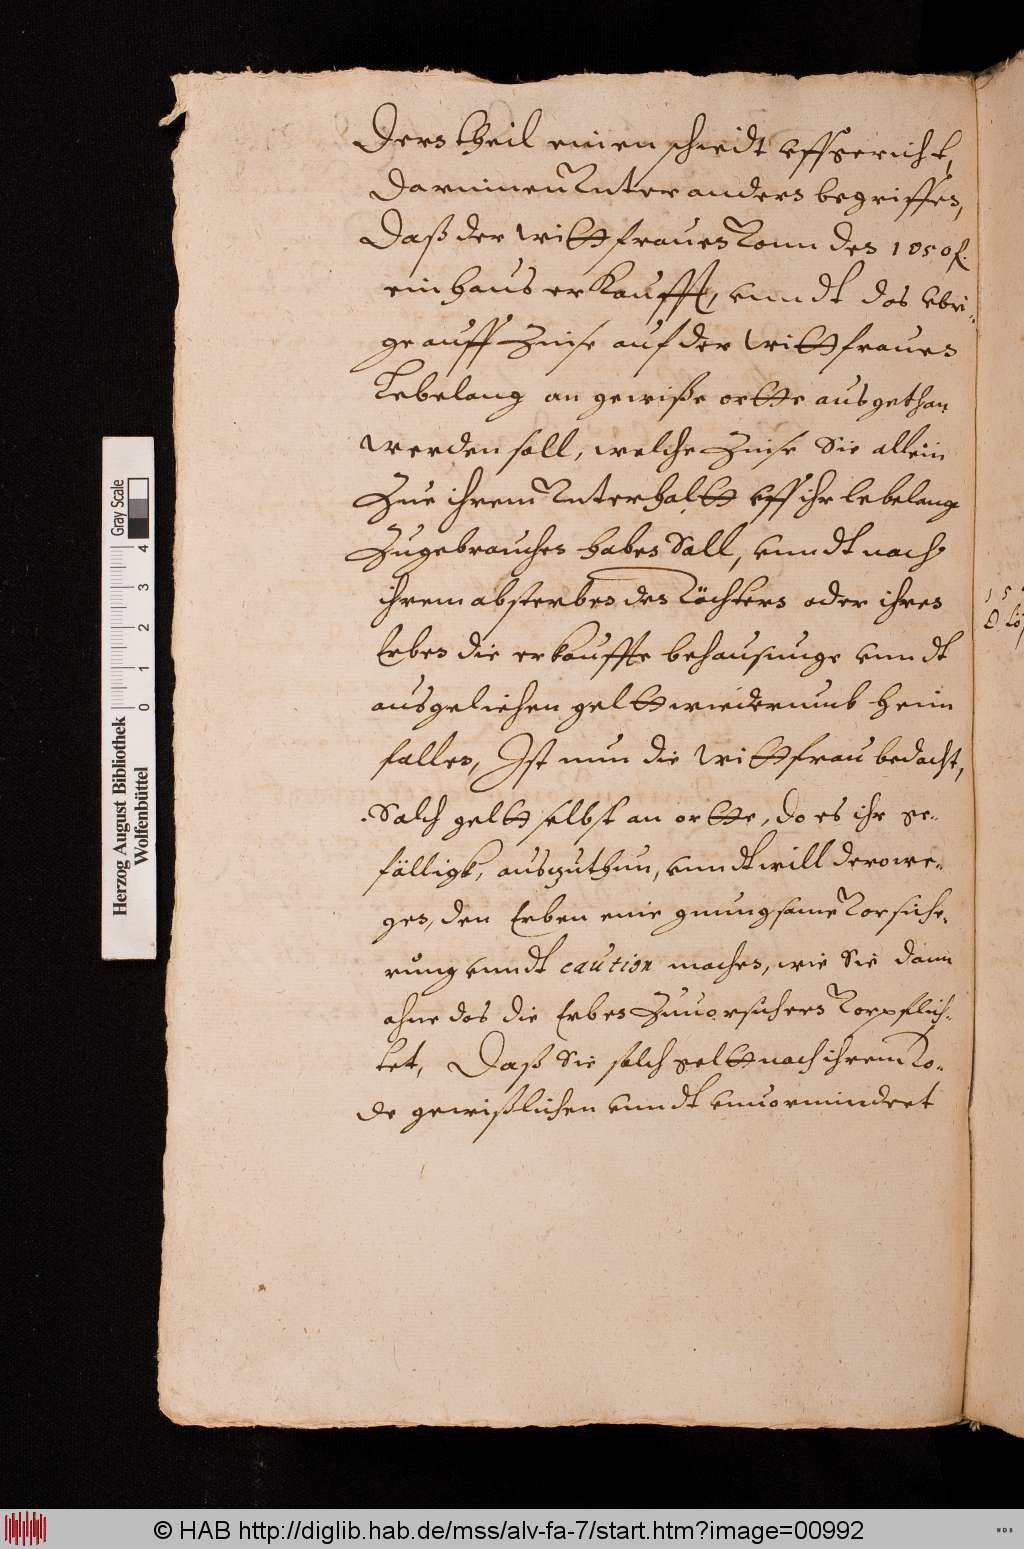 Ders theil einen schiedt uffgericht,
darinnen Unter anders begriffen,
Daß der wittfrauen Vonn den 1050 f.
ein haus erkaufft, unndt das ubri-
ge auff Zinse auf der Wittfrauen
Lebelang an gewiße ortte ausgethan
werden soll, welche Zinse Sie allein
Zue ihrem Unterhaltt uff ihr lebelang
Zugebrauchen haben Soll, unndt nach
ihrem absterben den Töchtern oder ihren
Erben die erkauffte behausunge unndt
ausgeliehen geltt wiederumb heim
fallen, Ist nun die wittfrau bedacht,
Solch geltt selbst an ortte, do es ihr ge-
fälligk, auszuthun, unndt will derowe-
gen, den Erben eine gnungsame Vorsiche-
rung unndt caution machen, wie Sie dann
ohne das die Erben Zuuorsichern Vorpflich-
tet, Daß Sie solch geltt nach ihrem To-
de gewißlichen unndt unuormindert
15
D Lö
Herzog August Bibliothek
Wolfenbüttel
Gray Scale
0 1 2 3 4
© HAB http://diglib.hab.de/mss/alv-fa-7/start.htm?image=00992